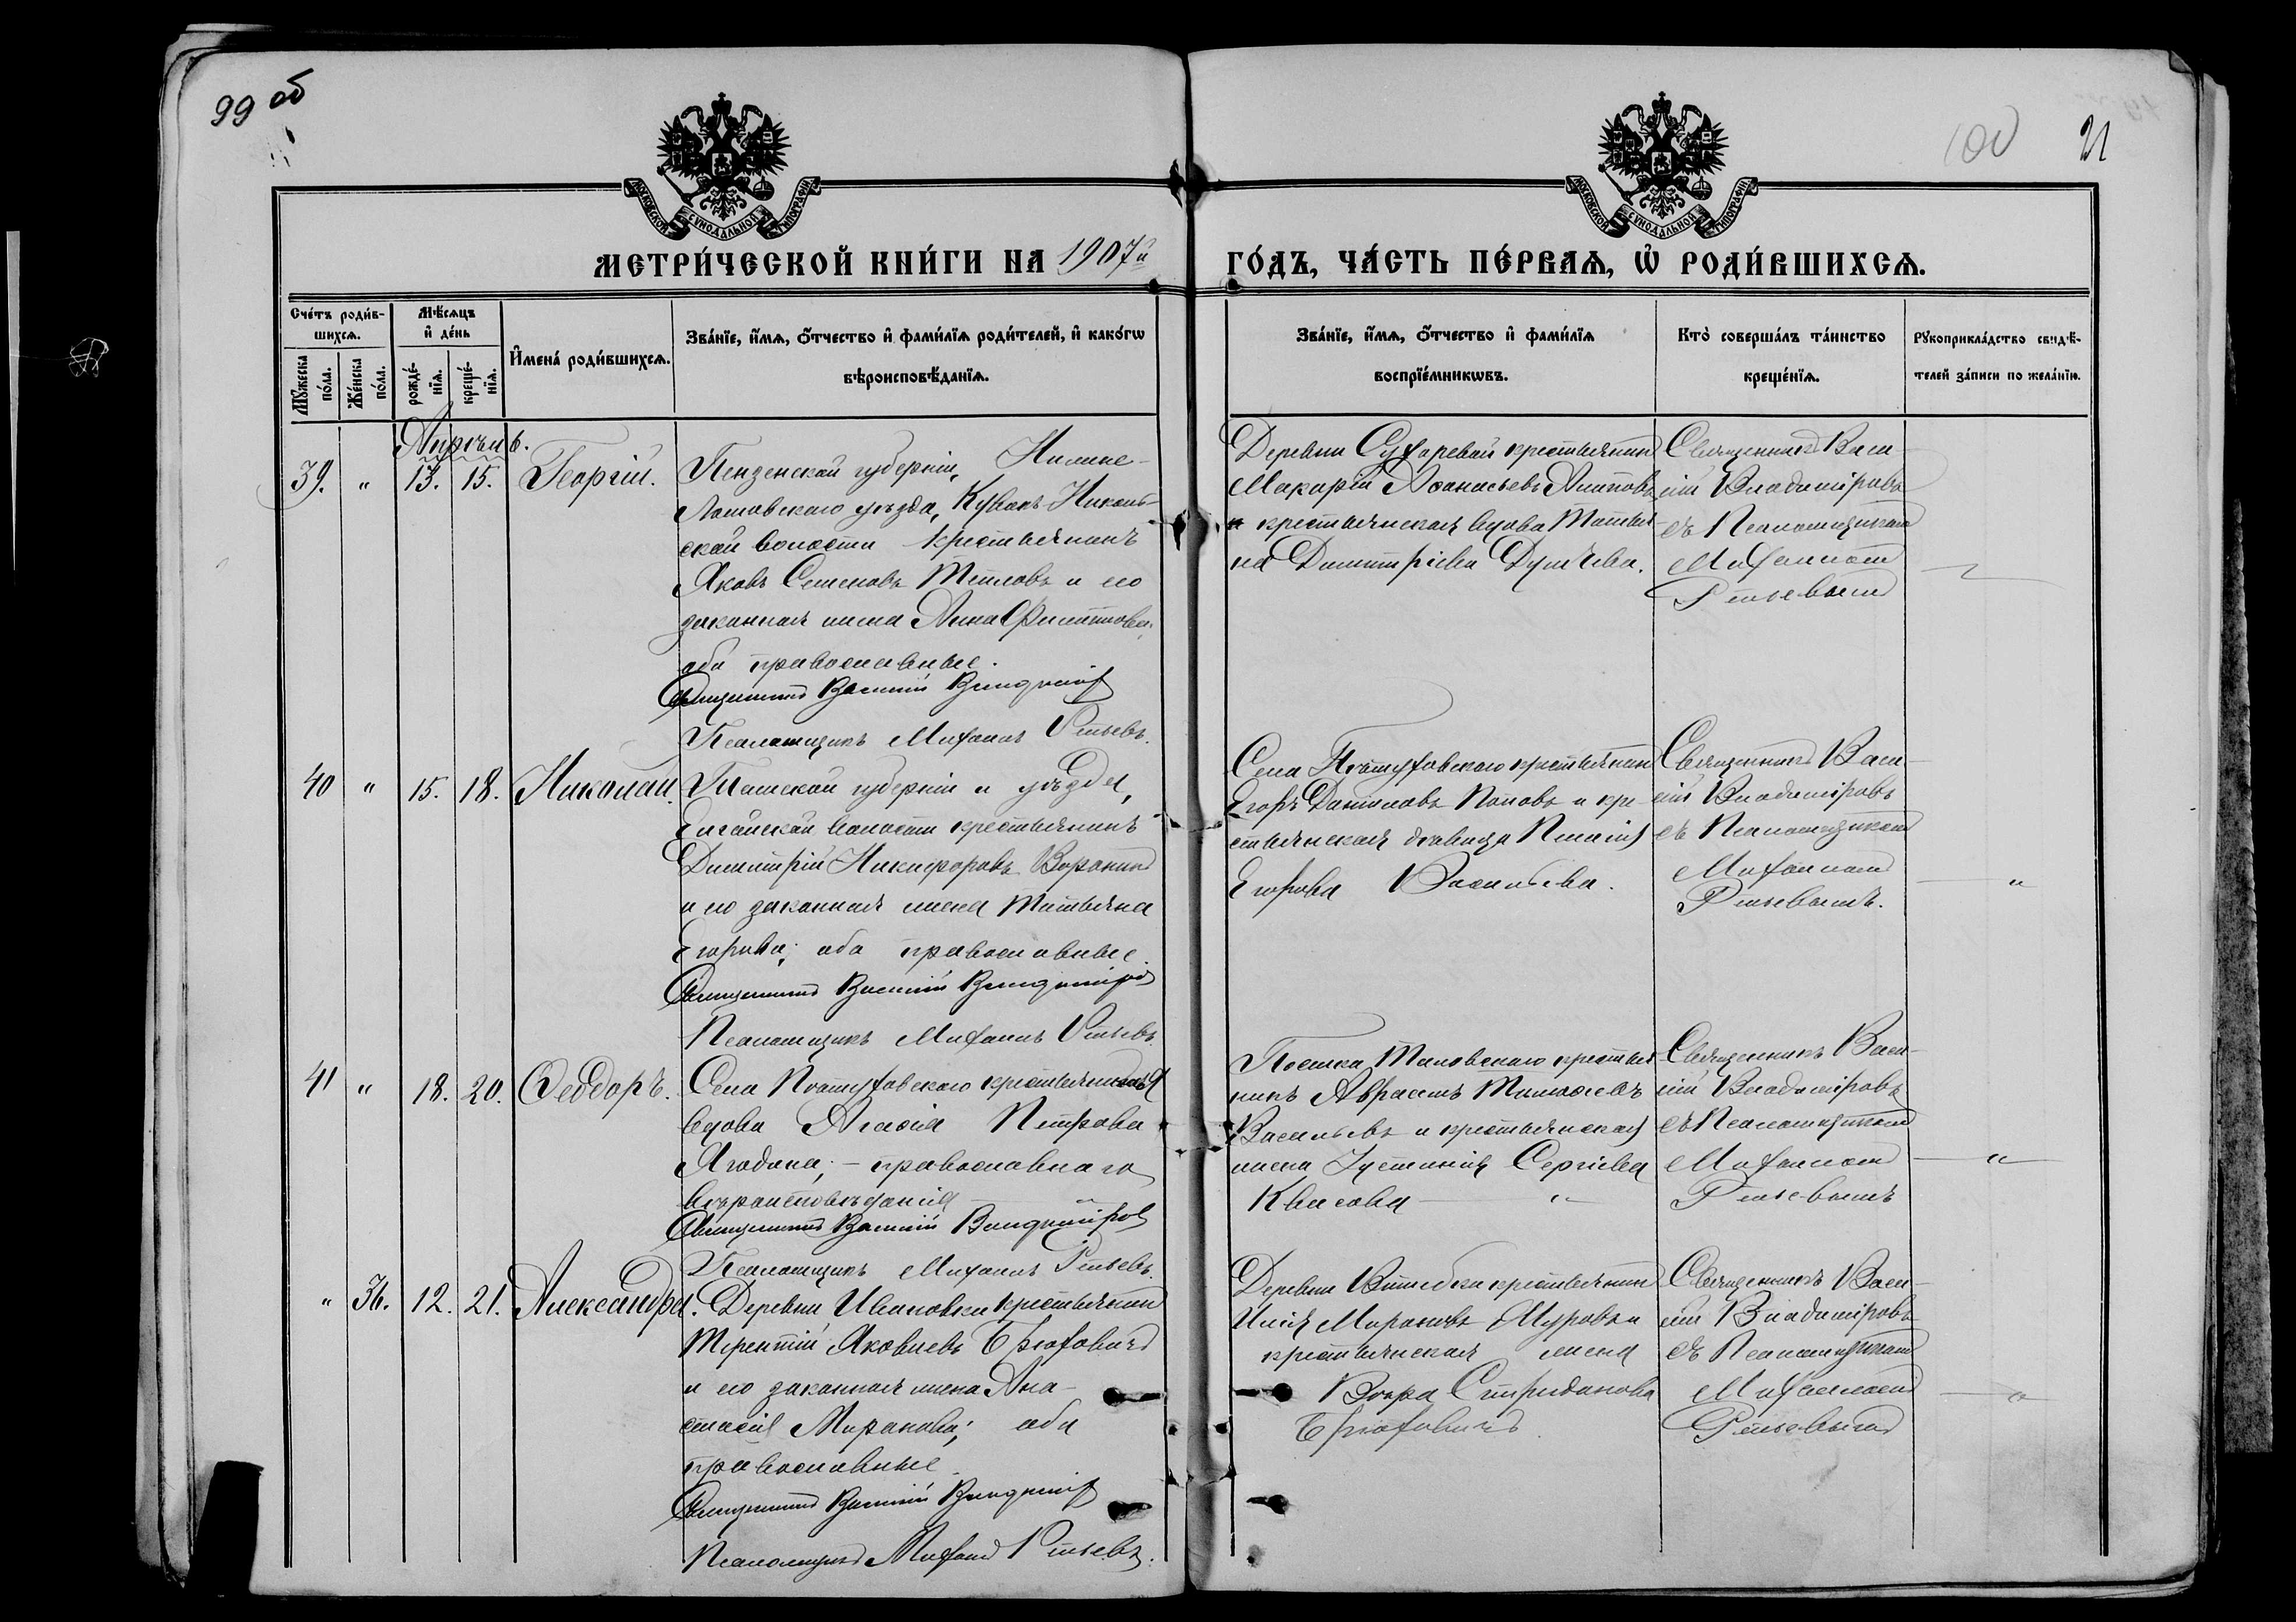 99 об
100
21
МОСКОВСКОЙ СѴНОДАЛЬНОЙ ТИПОГРАФІИ
МОСКОВСКОЙ СѴНОДАЛЬНОЙ ТИПОГРАФІИ
МЕТРИ́ЧЕСКОЙ КНИ́ГИ НА 1907й
ГО́ДЪ, ЧА́СТЬ ПЕ́РВАѦ, Ѡ҆ РОДИ́ВШИХСѦ.
Сче́тъ роди́в-
шихсѧ.
Мꙋжеска по́ла.
Же́нска по́ла.
Мѣ́сѧцъ
и҆ де́нь
рожде́-
нїѧ.
креще́-
нїѧ.
И҆мена́ роди́вшихсѧ.
Зва́нїе, и҆́мѧ, ѻ҆́тчество и҆ фами́лїѧ роди́телей, и҆ како́гѡ
вѣроисповѣ́данїѧ.
Зва́нїе, и҆́мѧ, ѻ҆́тчество и҆ фами́лїѧ
воспрїе́мникѡвъ.
Кто̀ соверша́лъ та́инство
креще́нїѧ.
Рꙋкоприкла́дство свидѣ́-
телей за́писи по жела́нїю.
Апрѣль.
39. " 13. 15. Георгій.
Пензенской губерніи, Нижне-
Ломовскаго уѣзда, Кувакъ-Николь-
ской волости крестьянинъ
Яковъ Семеновъ Тепловъ и его
законная жена Анна Филиппова,
оба православные.
Священникъ Василій Владиміровъ
Псаломщикъ Михаилъ
Деревни Сухаревой крестьянинъ
Макарій Аѳанасьевъ Антповъ
и крестьянская вдова Татья-
на Димитріева
Священникъ Васи-
лій Владиміровъ
съ Псаломщикомъ
Михаиломъ
40 " 15. 18. Николай.
Томской губерніи и уѣзда,
Елгайской волости крестьянинъ
Димитрій Никифоровъ Воронинъ
и его законная жена Татьяна
Егорова; оба православные.
Священникъ Василій Владиміровъ
Псаломщикъ Михаилъ
Села крестьянинъ
Егоръ Даниловъ Поповъ и кре-
стьянская дѣвица
Егорова Васильева.
Священникъ Васи-
лій Владиміровъ
съ Псаломщикомъ
Михаиломъ
"
41 " 18. 20. Ѳеодоръ.
Села крестьянская
вдова Агаѳія Петрова
Ягодина; – православнаго
вѣроисповѣданія
Священникъ Василій Владиміровъ
Псаломщикъ Михаилъ
Поселка Таловскаго крестья-
нинъ Авраамъ Тимоѳеевъ
Васильевъ и крестьянская
жена Іустинія Сергіева
Квасова "
Священникъ Васи-
лій Владиміровъ
съ Псаломщикомъ
Михаиломъ
"
" 36. 12. 21. Александра.
Деревни Ивановки крестьянинъ
Терентій Яковлевъ
и его законная жена Ана-
стасія Миронова; оба
православные.
Священникъ Василій Владиміровъ
Псаломщикъ Михаилъ
Деревни Витебки крестьянинъ
Илія Мироновъ Муровъ и
крестьянская жена
Вѣра Спиридонова
Священникъ Васи-
лій Владиміровъ
съ Псаломщикомъ
Михаиломъ
"